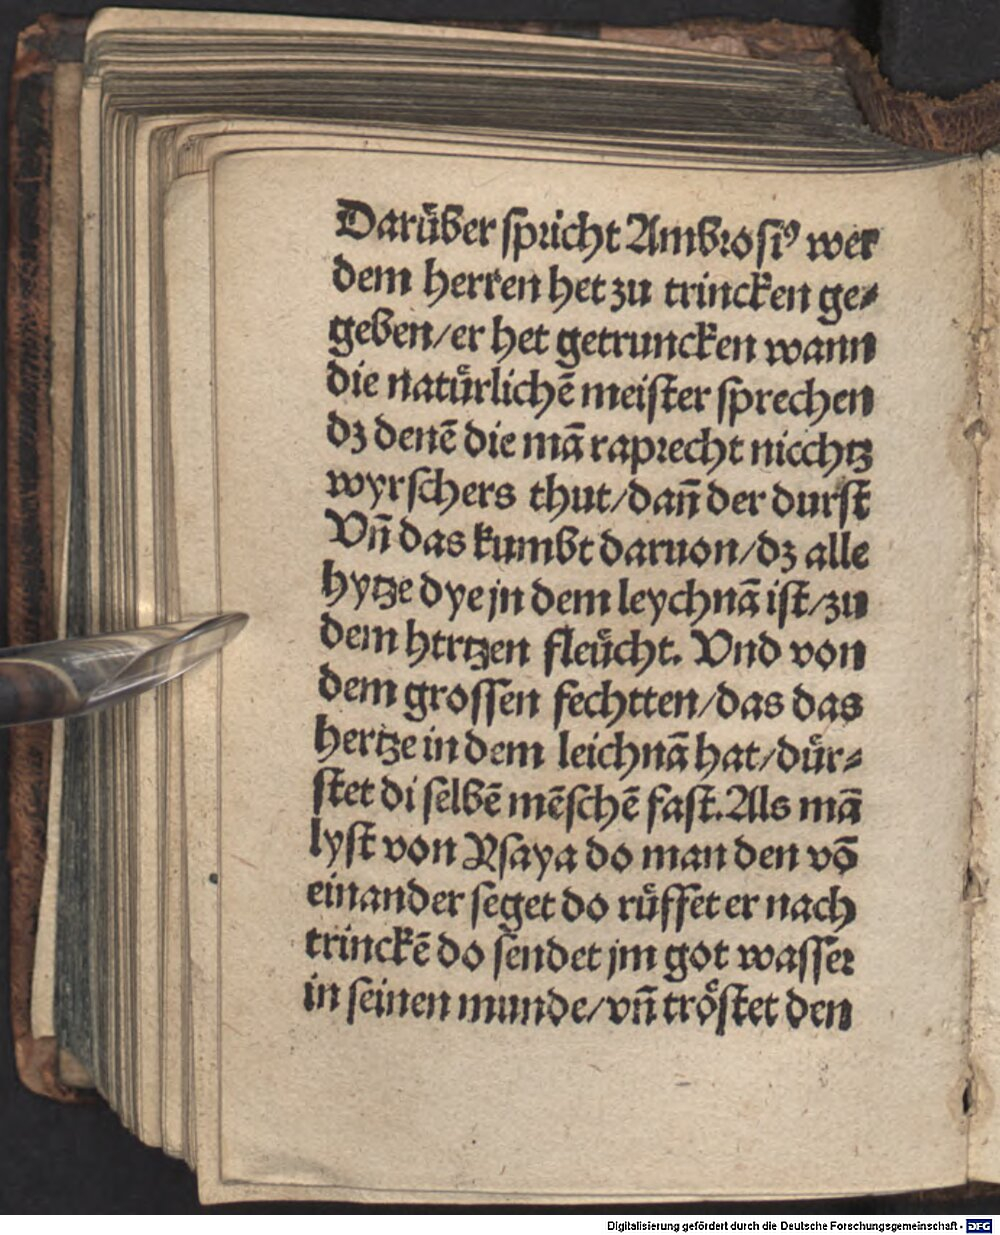 Darüber spricht Ambrosiꝰ wer
dem herren het zu trincken ge⸗
geben/er het getruncken wann
die natuͤrlichē meister sprechen
dz denē die mā raprecht nicchtz
wyrschers thut/dañ der durst
Vñ das kumbt daruon/dz alle
hytze dye jn dem leychnā ist/zu
dem htrtzen fleücht. Vnd von
dem grossen fechtten/das das
hertze in dem leichnā hat/duͤr⸗
stet di selbē mēschē fast. Als mā
lyst von Ysaya do man den vō
einander seget do ruͤffet er nach
trinckē do sendet jm got wasser
in seinen munde/vñ troͤstet den
Digitalisierung gefördert durch die Deutsche Forschungsgemeinschaft - DFG